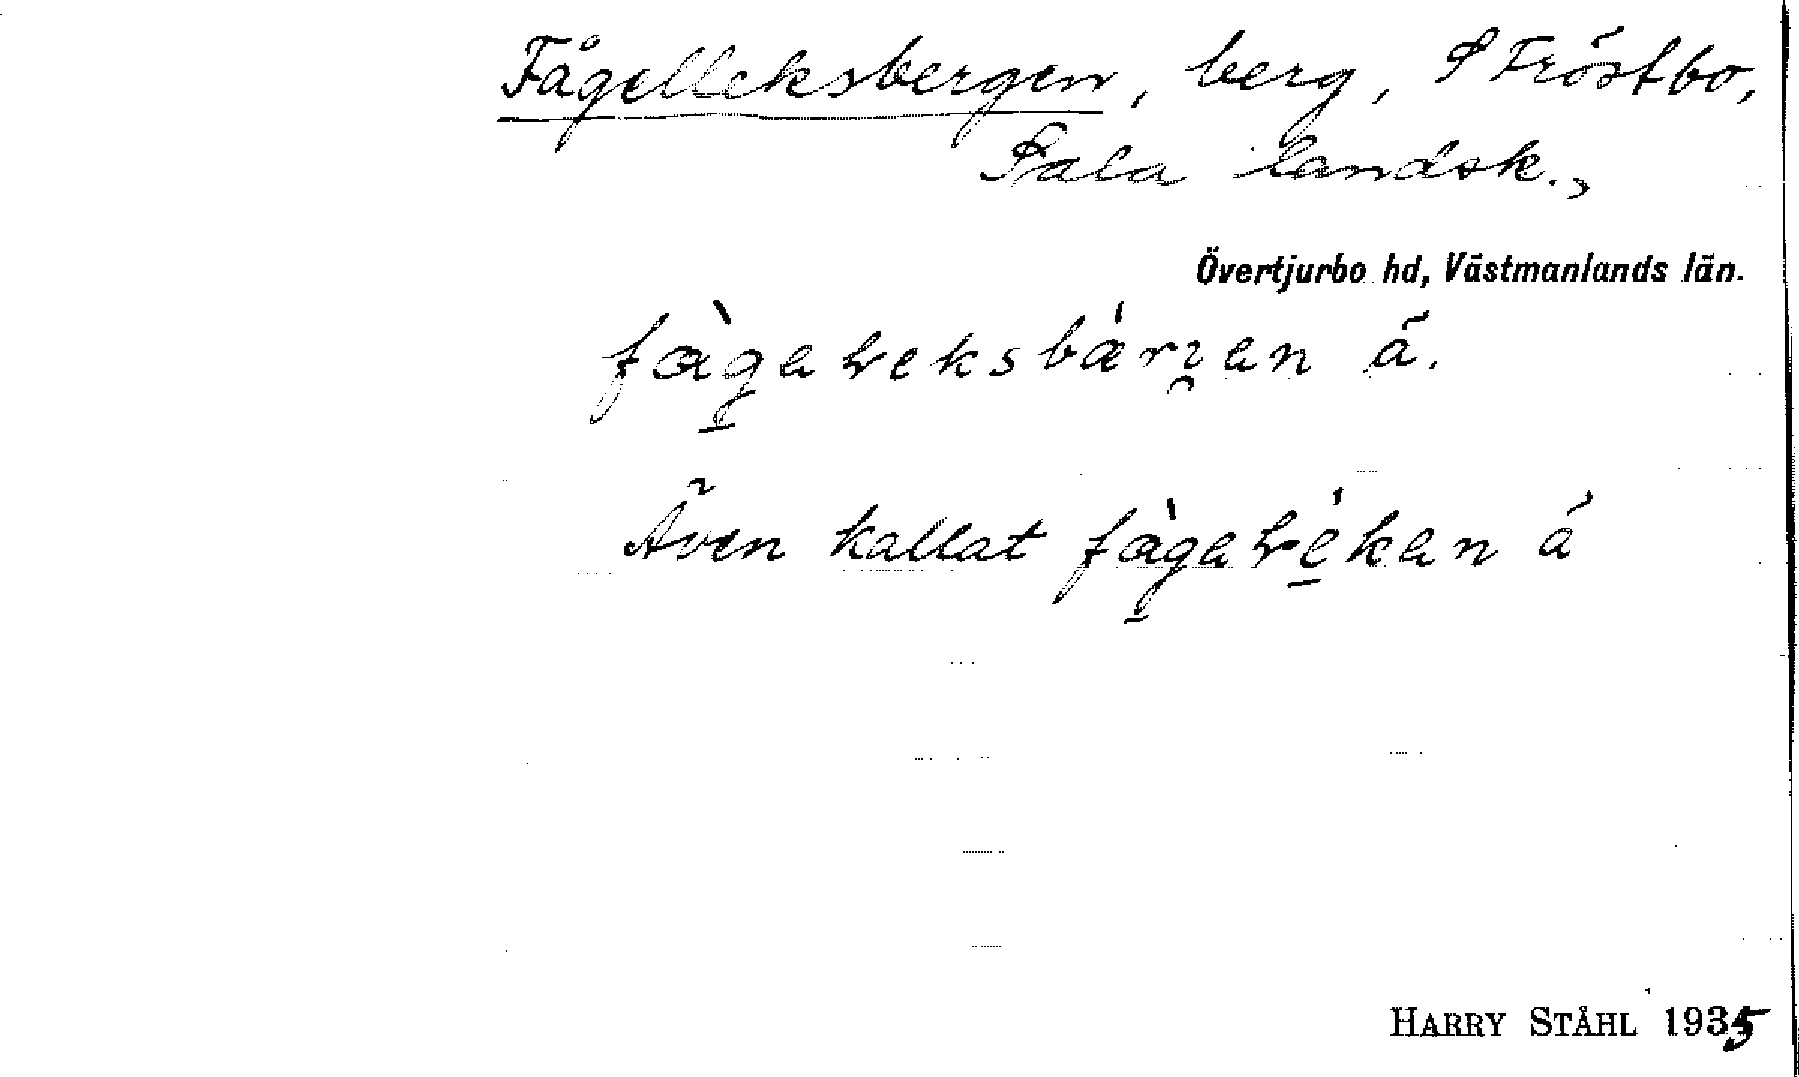 Fågelleksbergen, berg, S Fröstbo,
Sala landsk.,
Övertjurbo hd, Västmanlands län.
ä.
Även kallat
HARRY STÅHL 1935